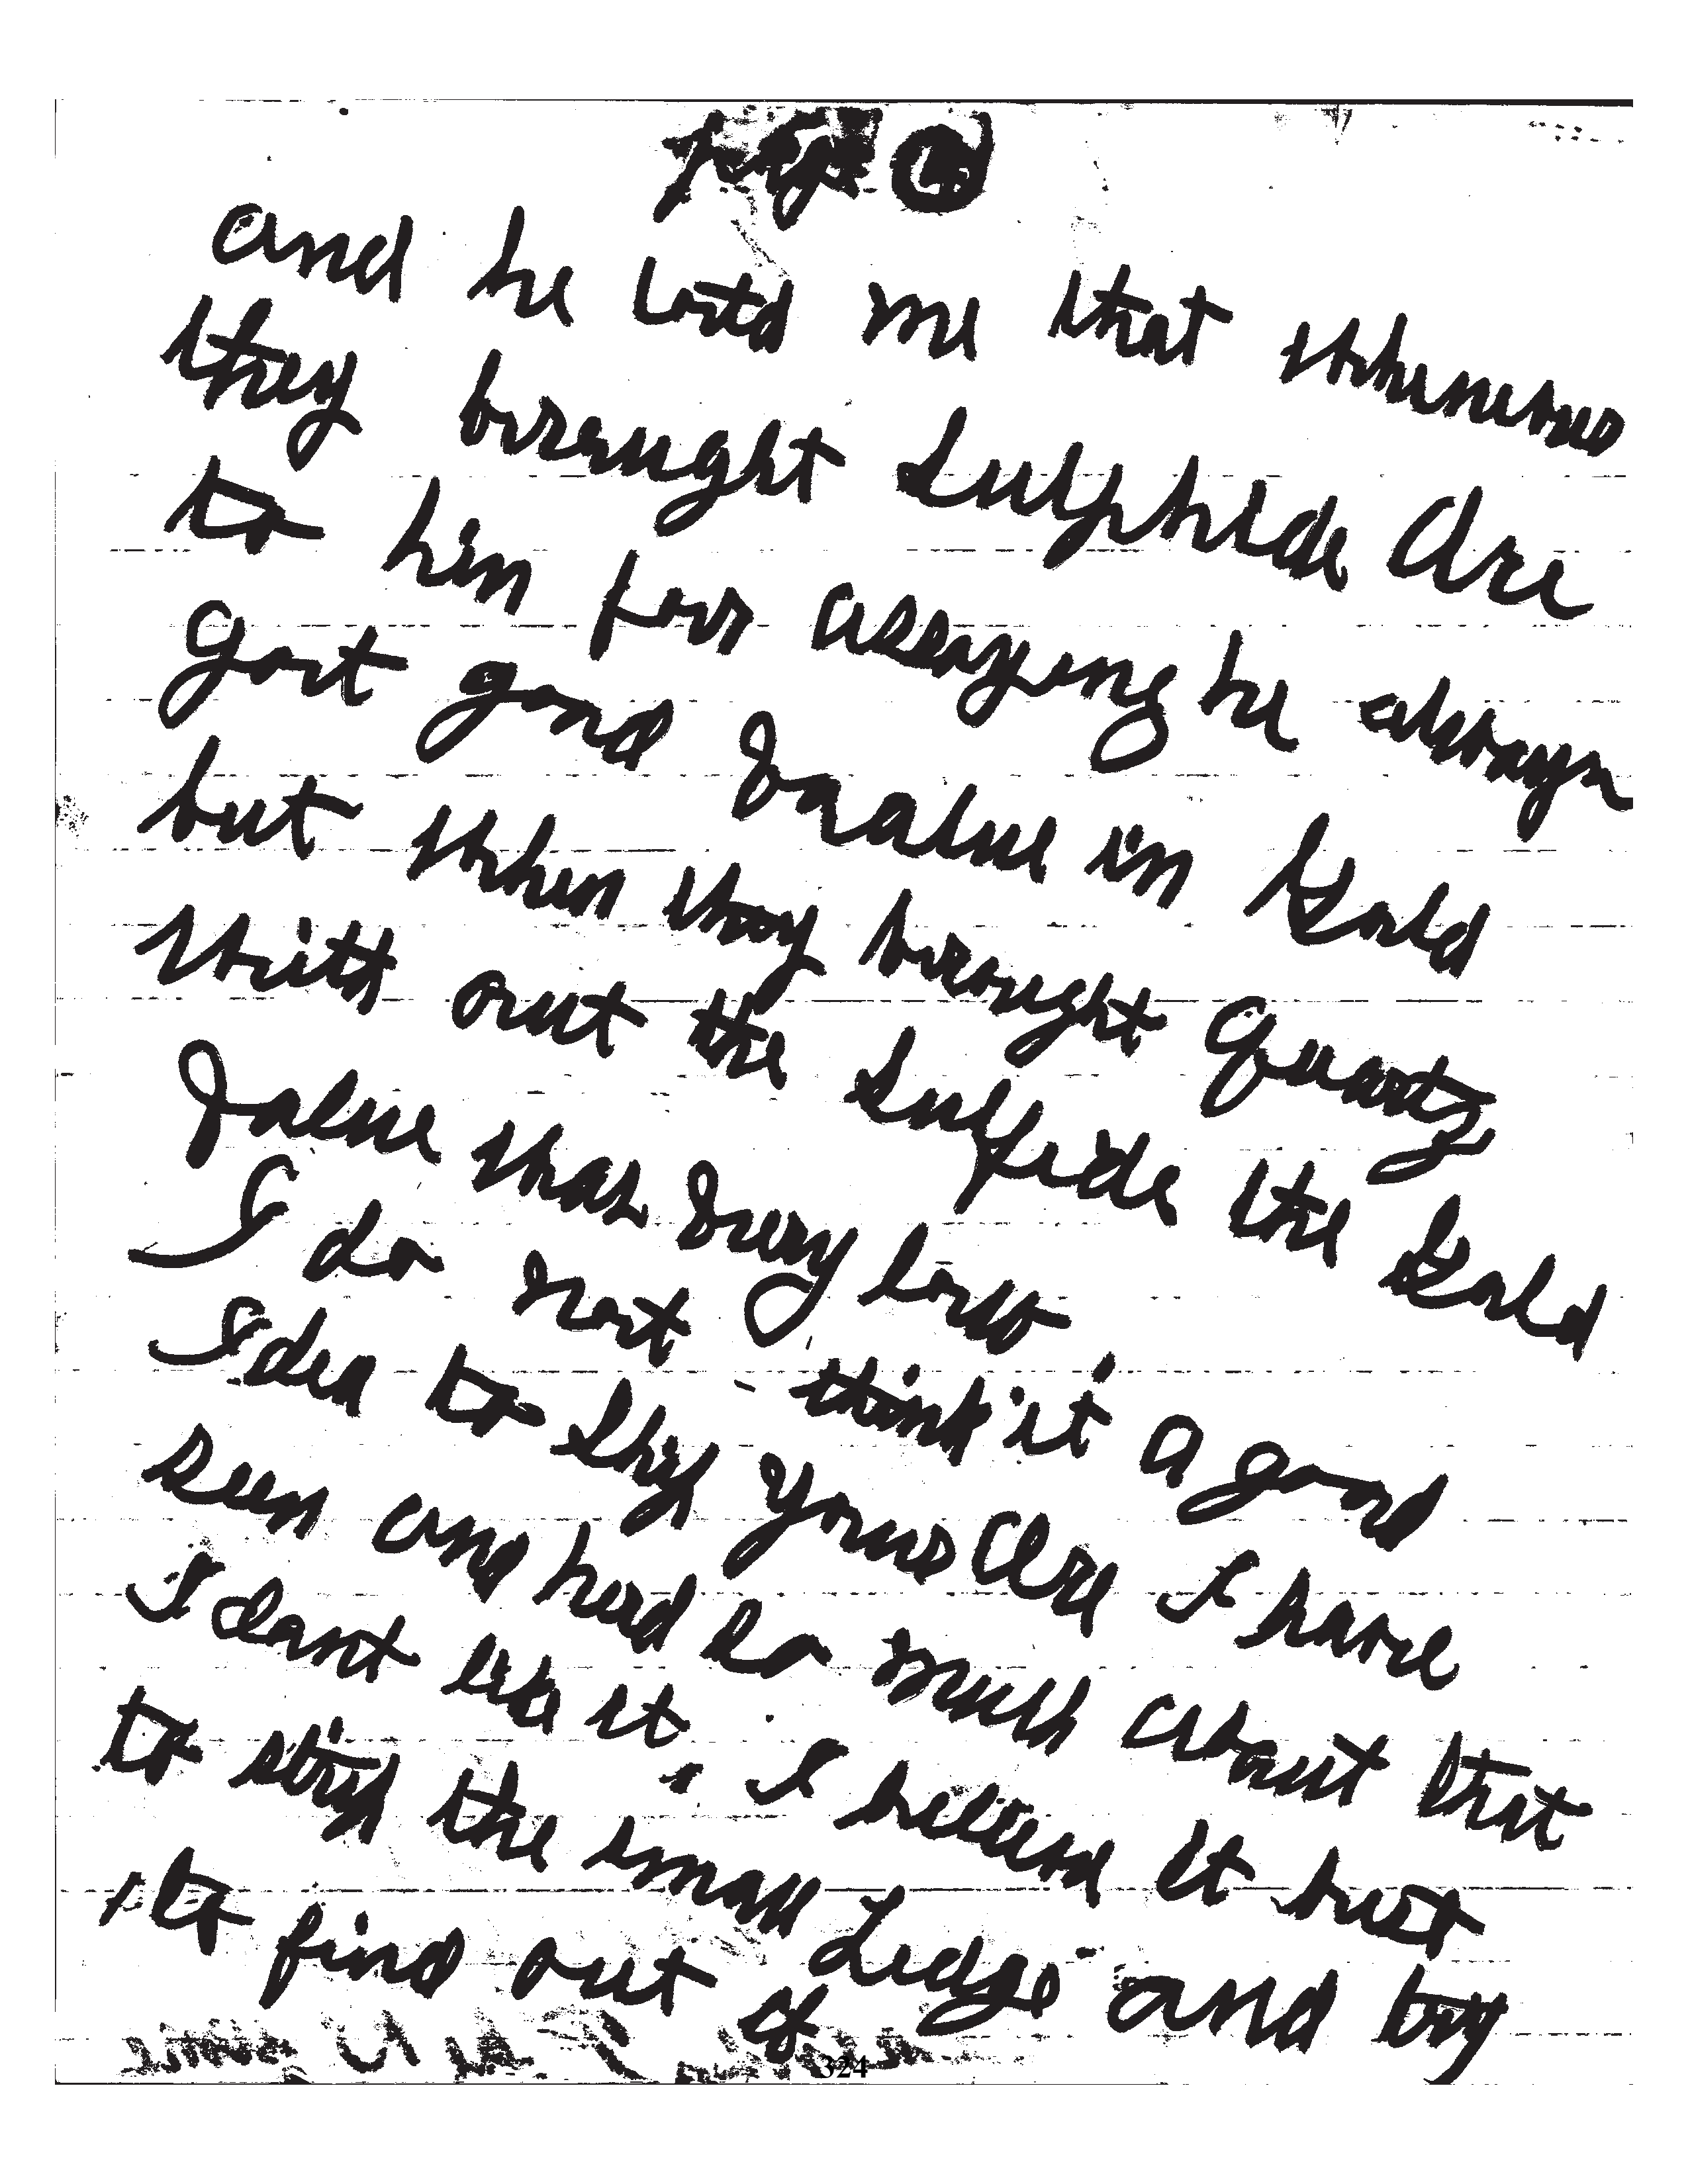 page
and he told me that whenever
they brought Sulphide Ore
to him for assaying he always
got good Vaalue in Gold
but when they brought Quartz
with out the Sulfide the Gold
Value was Very low,
I do not think it a good
Idea to Ship your Ore I have
seen and herd so much about that
I dont like it. I believe it best
to strip the small Ledge and try
to find out if
324